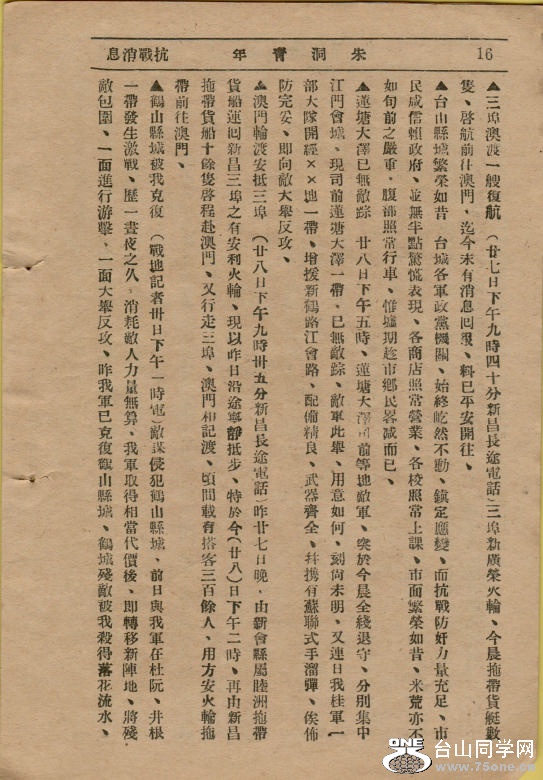 16
朱洞青年
抗戰消息
▲三埠澳渡一艘復航 (廿七日下午九時四十分新昌長途電話)三埠新廣榮火輪、今晨拖帶貨艇數
隻、啓航前往澳門、迄今未有消息回覆、料已平安開往、
▲台山縣城繁榮如昔 台城各軍政黨機關、始終屹然不動、鎮定應變、而抗戰防奸力量充足、市
民咸信賴政府、並無半點驚慌表現、各商店照常營業、各校照常上課、市面繁榮如昔、米荒亦不
如旬前之嚴重、腹部照常行車、惟墟期趁市鄉民畧減而已、
▲蓮塘大澤已無敵踪 廿八日下午五時、蓮塘大澤司前等地敵軍、突於今晨全綫退守、分別集中
江門會城、現司前蓮塘大澤一帶、已無敵踪、敵軍此舉、用意如何、刻尚未明、又連日我桂軍一
部大隊開經××地一帶、增援新鶴路江會路、配備精良、武器齊全、并携有蘇聯式手溜彈、俟佈
防完妥、即向敵大舉反攻、
▲澳門輪渡安抵三埠 (廿八日下午九時卅五分新昌長途電話)昨廿七日晚、由新會縣屬睦洲拖帶
貨船運回新昌三埠之有安利火輪、現以昨日沿途寧靜抵步、特於今(廿八)日下午二時、再由新昌
拖帶貨船十餘隻啓程赴澳門、又行走三埠、澳門和記渡、頃間載有搭客三百餘人、用方安火輪拖
帶前往澳門、
▲鶴山縣城被我克復 (戰地記者卅日下午一時電)敵謀侵犯鶴山縣城、前日與我軍在杜阮、井根
一帶發生激戰、歷一晝夜之久、消耗敵人力量無算、我軍取得相當代價後、即轉移新陣地、將殘
敵包圍、一面進行游擊、一面大舉反攻、昨我軍已克復鶴山縣城、鶴城殘敵被我殺得落花流水、
ONE
台山同学网
www.75one.com